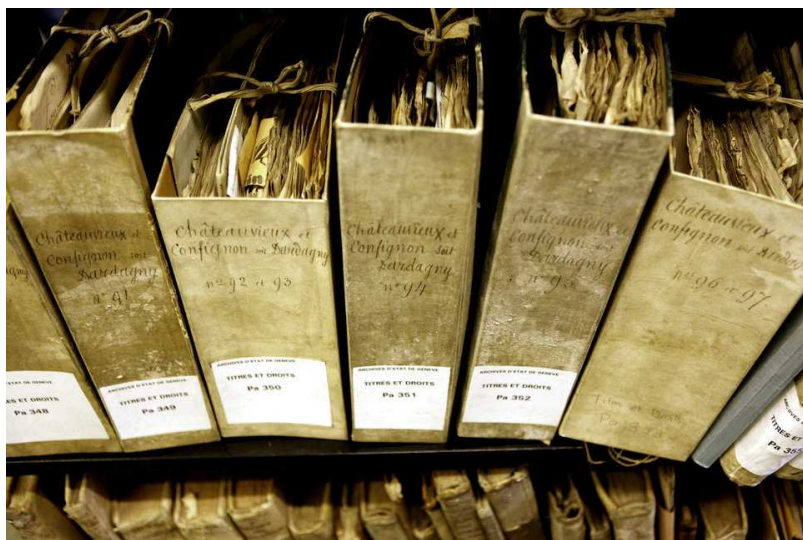 ARCHIVES D'ETAT DE GENEVE
TITRES ET DROITS
Pa 348
Châteauvieux et
Confignon soit
Dardagny
n° 91
ARCHIVES D'ETAT DE GENEVE
TITRES ET DROITS
Pa 349
Châteauvieux et
Confignon soit Dardagny
nos 92 et 93
ARCHIVES D'ETAT DE GENEVE
TITRES ET DROITS
Pa 350
Châteauvieux et
Confignon soit
Dardagny
n° 94
ARCHIVES D'ETAT DE GENEVE
TITRES ET DROITS
Pa 351
Châteauvieux et
Confignon soit
Dardagny
ARCHIVES D'ETAT DE GENEVE
TITRES ET DROITS
Pa 352
Châteauvieux et
Confignon soit Dardagny
nos 96 et 97.
Titres et Droits
TITRES ET DROITS